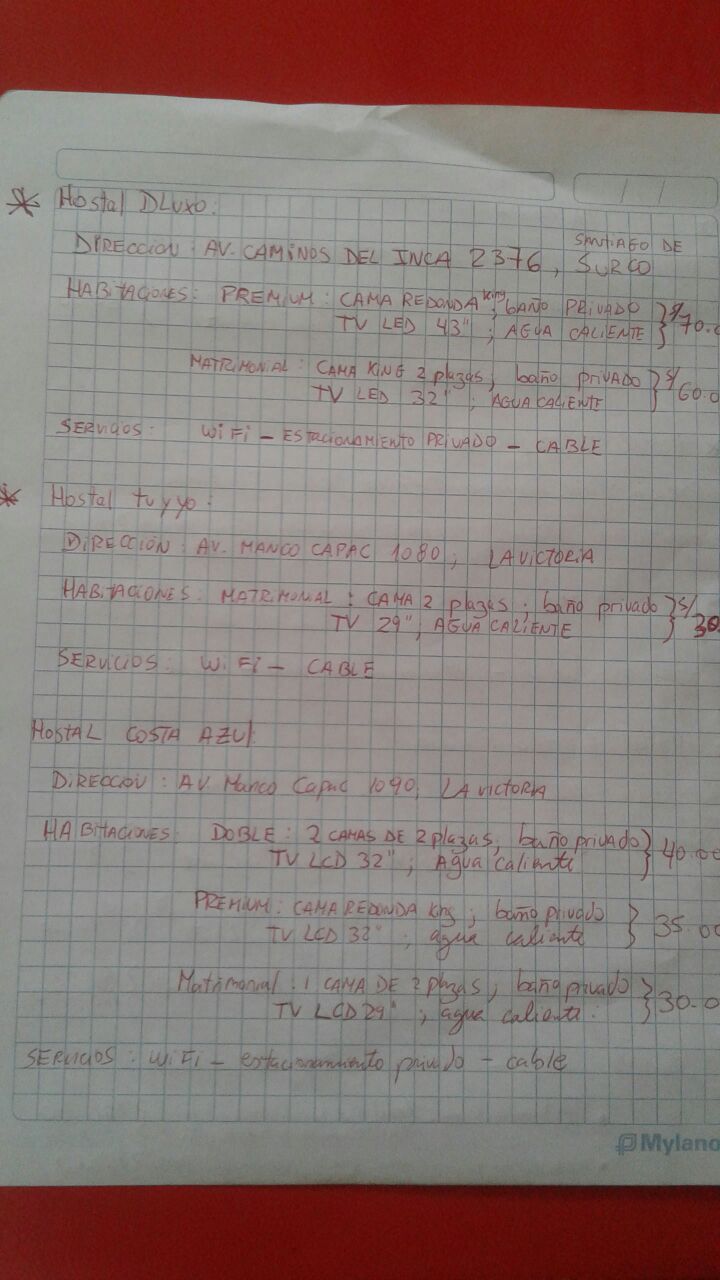 * Hostal DLuxo:
DIRECCION: AV. CAMINOS DEL INCA 2376, SANTIAGO DE SURCO
HABITACIONES: PREMIUM: CAMA REDONDA King; BAÑO PRIVADO
TV LED 43"; AGUA CALIENTE } S/70.0
MATRIMONIAL: CAMA KING 2 plazas; baño privado
TV LED 32"; AGUA CALIENTE } S/60.0
SERVICIOS: WiFi - ESTACIONAMIENTO PRIVADO - CABLE
* Hostal tu y yo:
DIRECCIÓN: AV. MANCO CAPAC 1080, LA VICTORIA
HABITACIONES: MATRIMONIAL: CAMA 2 plazas; baño privado
TV 29"; AGUA CALIENTE } S/30
SERVICIOS: WiFi - CABLE
HOSTAL COSTA AZUL
DIRECCION: AV. Manco Capac 1090, LA VICTORIA
HABITACIONES DOBLE: 2 CAMAS DE 2 plazas, baño privado
TV LCD 32"; Agua caliente } 40.00
PREMIUM: CAMA REDONDA King; baño privado
TV LCD 32"; agua caliente } 35.00
Matrimonial: 1 CAMA DE 2 plazas, baño privado
TV LCD 29"; agua caliente. } 30.0
SERVICIOS: WiFi - estacionamiento privado - cable
Mylano